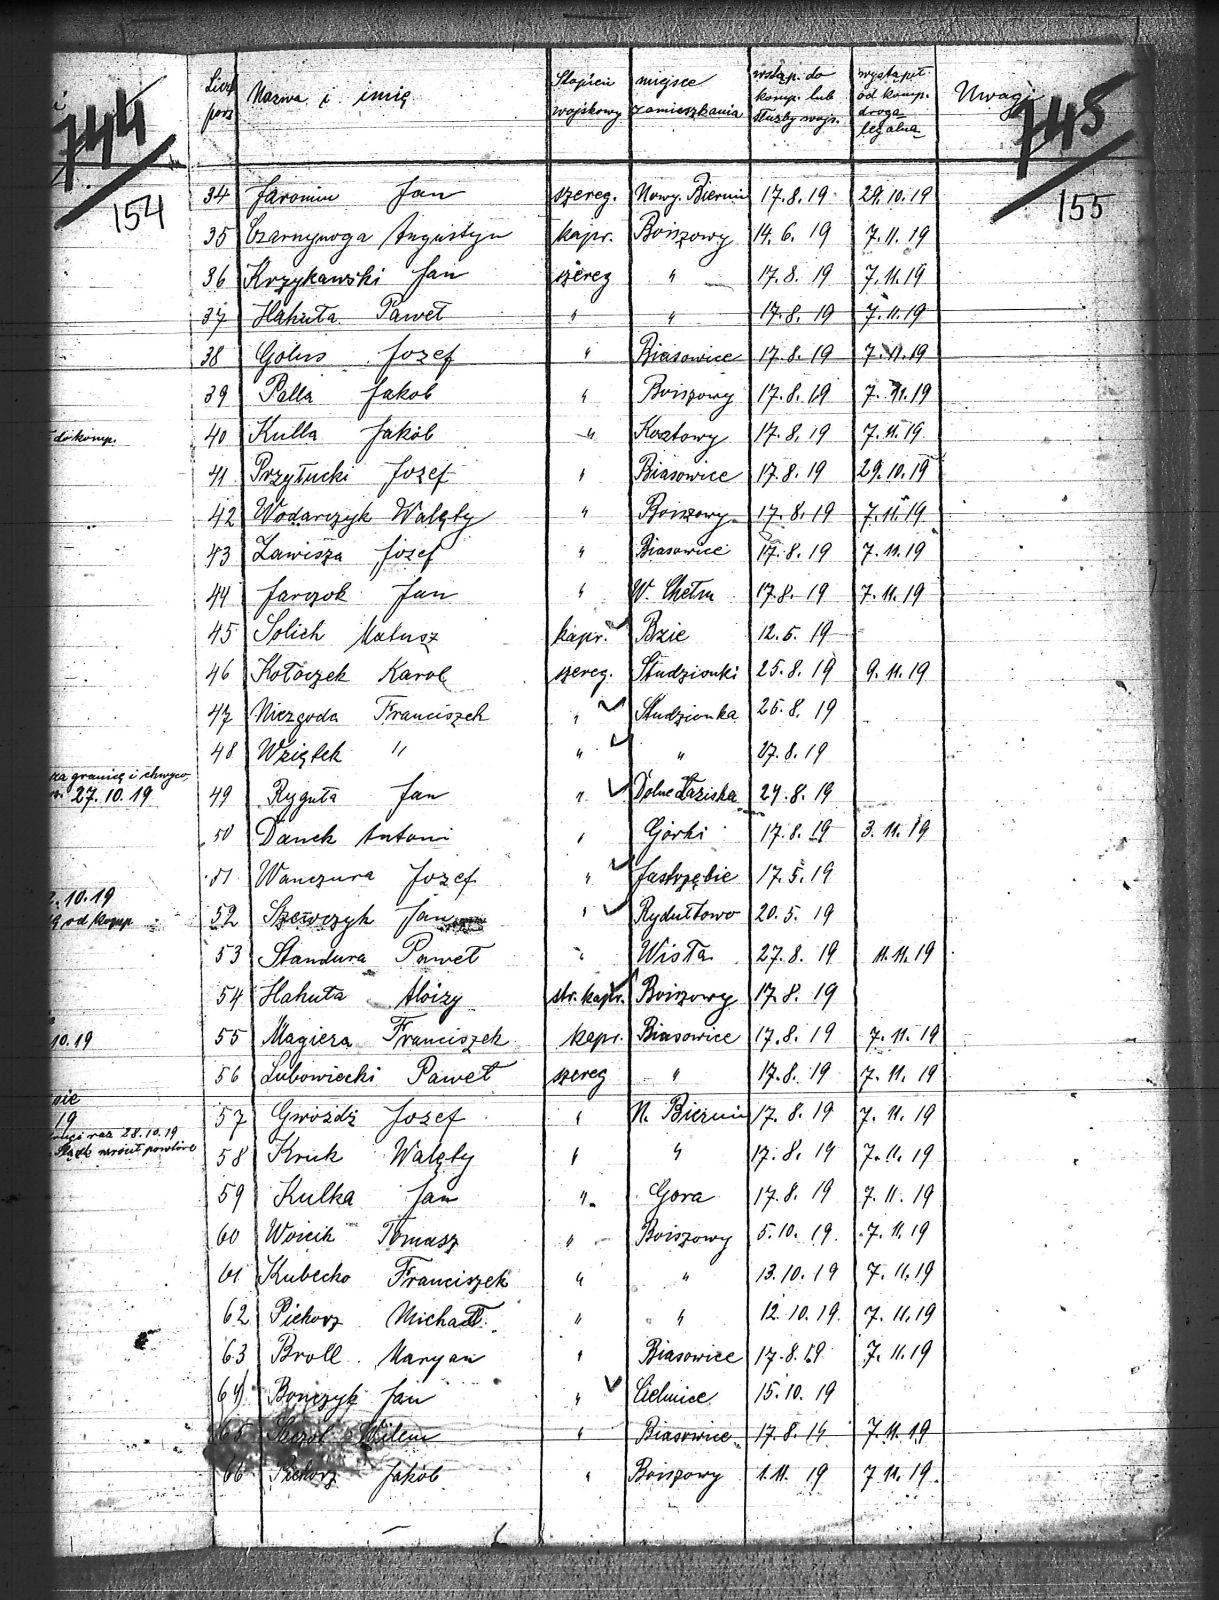 744
154
do komp.
za granicę i chwyco
27.10.19
2.10.19
19 od komp.
10.19
19
raz 28.10.19
wrócił powtóre
Licz porz
Nazwa i imię
Stopień wojskowy
miejsce zamieszkania
wstąp. do komp. lub służby wojs.
wystąpił od komp. drogą legalną
Uwagi
745
155
34 Jaromin Jan szereg. Nowy. Bieruń 17.8.19 29.10.19
35 Czarnynoga Augustyn kapr. Boiszowy 14.6.19 7.11.19
36 Krzykawski Jan szereg " 17.8.19 7.11.19
37 Hahuła Paweł " " 17.8.19 7.11.19
38 Golus Jozef " Biasowice 17.8.19 7.11.19
39 Palla Jakob " Boiszowy 17.8.19 7.11.19
40 Kulla Jakób " Kosztowy 17.8.19 7.11.19
41 Przyłucki Jozef " Biasowice 17.8.19 29.10.19
42 Wodarczyk Walęty " Boiszowy 17.8.19 7.11.19
43 Zawisza Jozef " Biasowice 17.8.19 7.11.19
44 Jarczok Jan " W. Chełm 17.8.19 7.11.19
45 Solich Matusz kapr. Bzie 12.5.19
46 Kołoczek Karol szereg. Studzionki 25.8.19 9.11.19
47 Niezgoda Franciszek " Studzionka 25.8.19
48 Wziętek " " " 27.8.19
49 Ryguła Jan " Dolne Łaziska 29.8.19
50 Danek Antoni " Górki 17.8.19 3.11.19
51 Wanczura Jozef " Jastrzębie 17.5.19
52 Szewczyk Jan " Rydułtowo 20.5.19
53 Standura Paweł " Wisła 27.8.19 11.11.19
54 Hahuła Aloizy str. kapr. Boiszowy 17.8.19
55 Magiera Franciszek kapr. Biasowice 17.8.19 7.11.19
56 Lubowiecki Paweł szereg " 17.8.19 7.11.19
57 Gwóźdź Jozef " N. Bieruń 17.8.19 7.11.19
58 Kruk Walęty " " 17.8.19 7.11.19
59 Kulka Jan " Gora 17.8.19 7.11.19
60 Woicik Tomasz " Boiszowy 5.10.19 7.11.19
61 Kubecko Franciszek " " 13.10.19 7.11.19
62 Piekorz Michael " " 12.10.19 7.11.19
63 Broll Maryan " Biasowice 17.8.19 7.11.19
64 Bończyk Jan " Cielmice 15.10.19
65 Wilem " Biasowice 17.8.19 7.11.19
66 Piekorz Jakób " Boiszowy 1.11.19 7.11.19